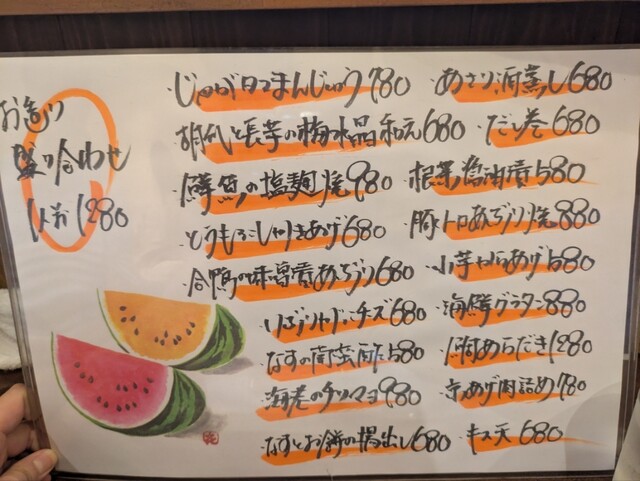 お造り
盛り合わせ
1人前1280
・じゃが日てまんじゅう780
・胡瓜と長芋の梅水晶和え680
・鮮魚の塩麹焼980
・とうもろこしかきあげ680
・合鴨の味噌漬あぶり680
・いぶりがっこチーズ680
・なすの南蛮酢だし580
・海老のチリマヨ980
・なすとお餅の揚出し680
・あさり酒蒸し680
・だし巻680
・根菜醤油漬580
・豚トロあぶり焼880
・小芋からあげ580
・海鮮グラタン880
・鯛あらだき1280
・京あげ肉詰め780
・キス天680